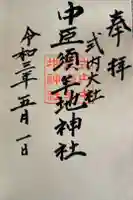 奉拝
式内大社
中臣須牟地神社
令和三年五月一日